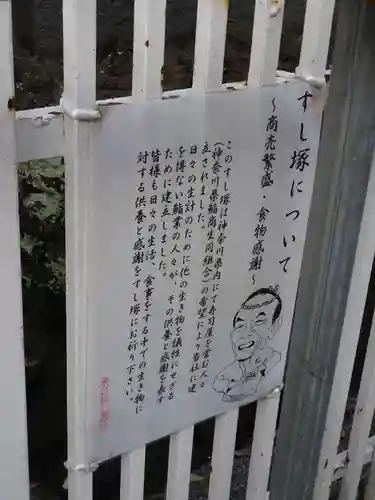 すし塚について
～商売繁盛・食物感謝～
このすし塚は神奈川県内にて寿司屋を営む人々
(神奈川県鮨商生活共同組合)の希望により当社に建
立されました。
日々の生計のために他の生き物を犠牲にせざる
を得ない鮨業の人々が、その供養と感謝を表す
ために建立しました。
皆様も日々の生活、食事をする中での生き物に
対する供養と感謝をすし塚にお祈り下さい。